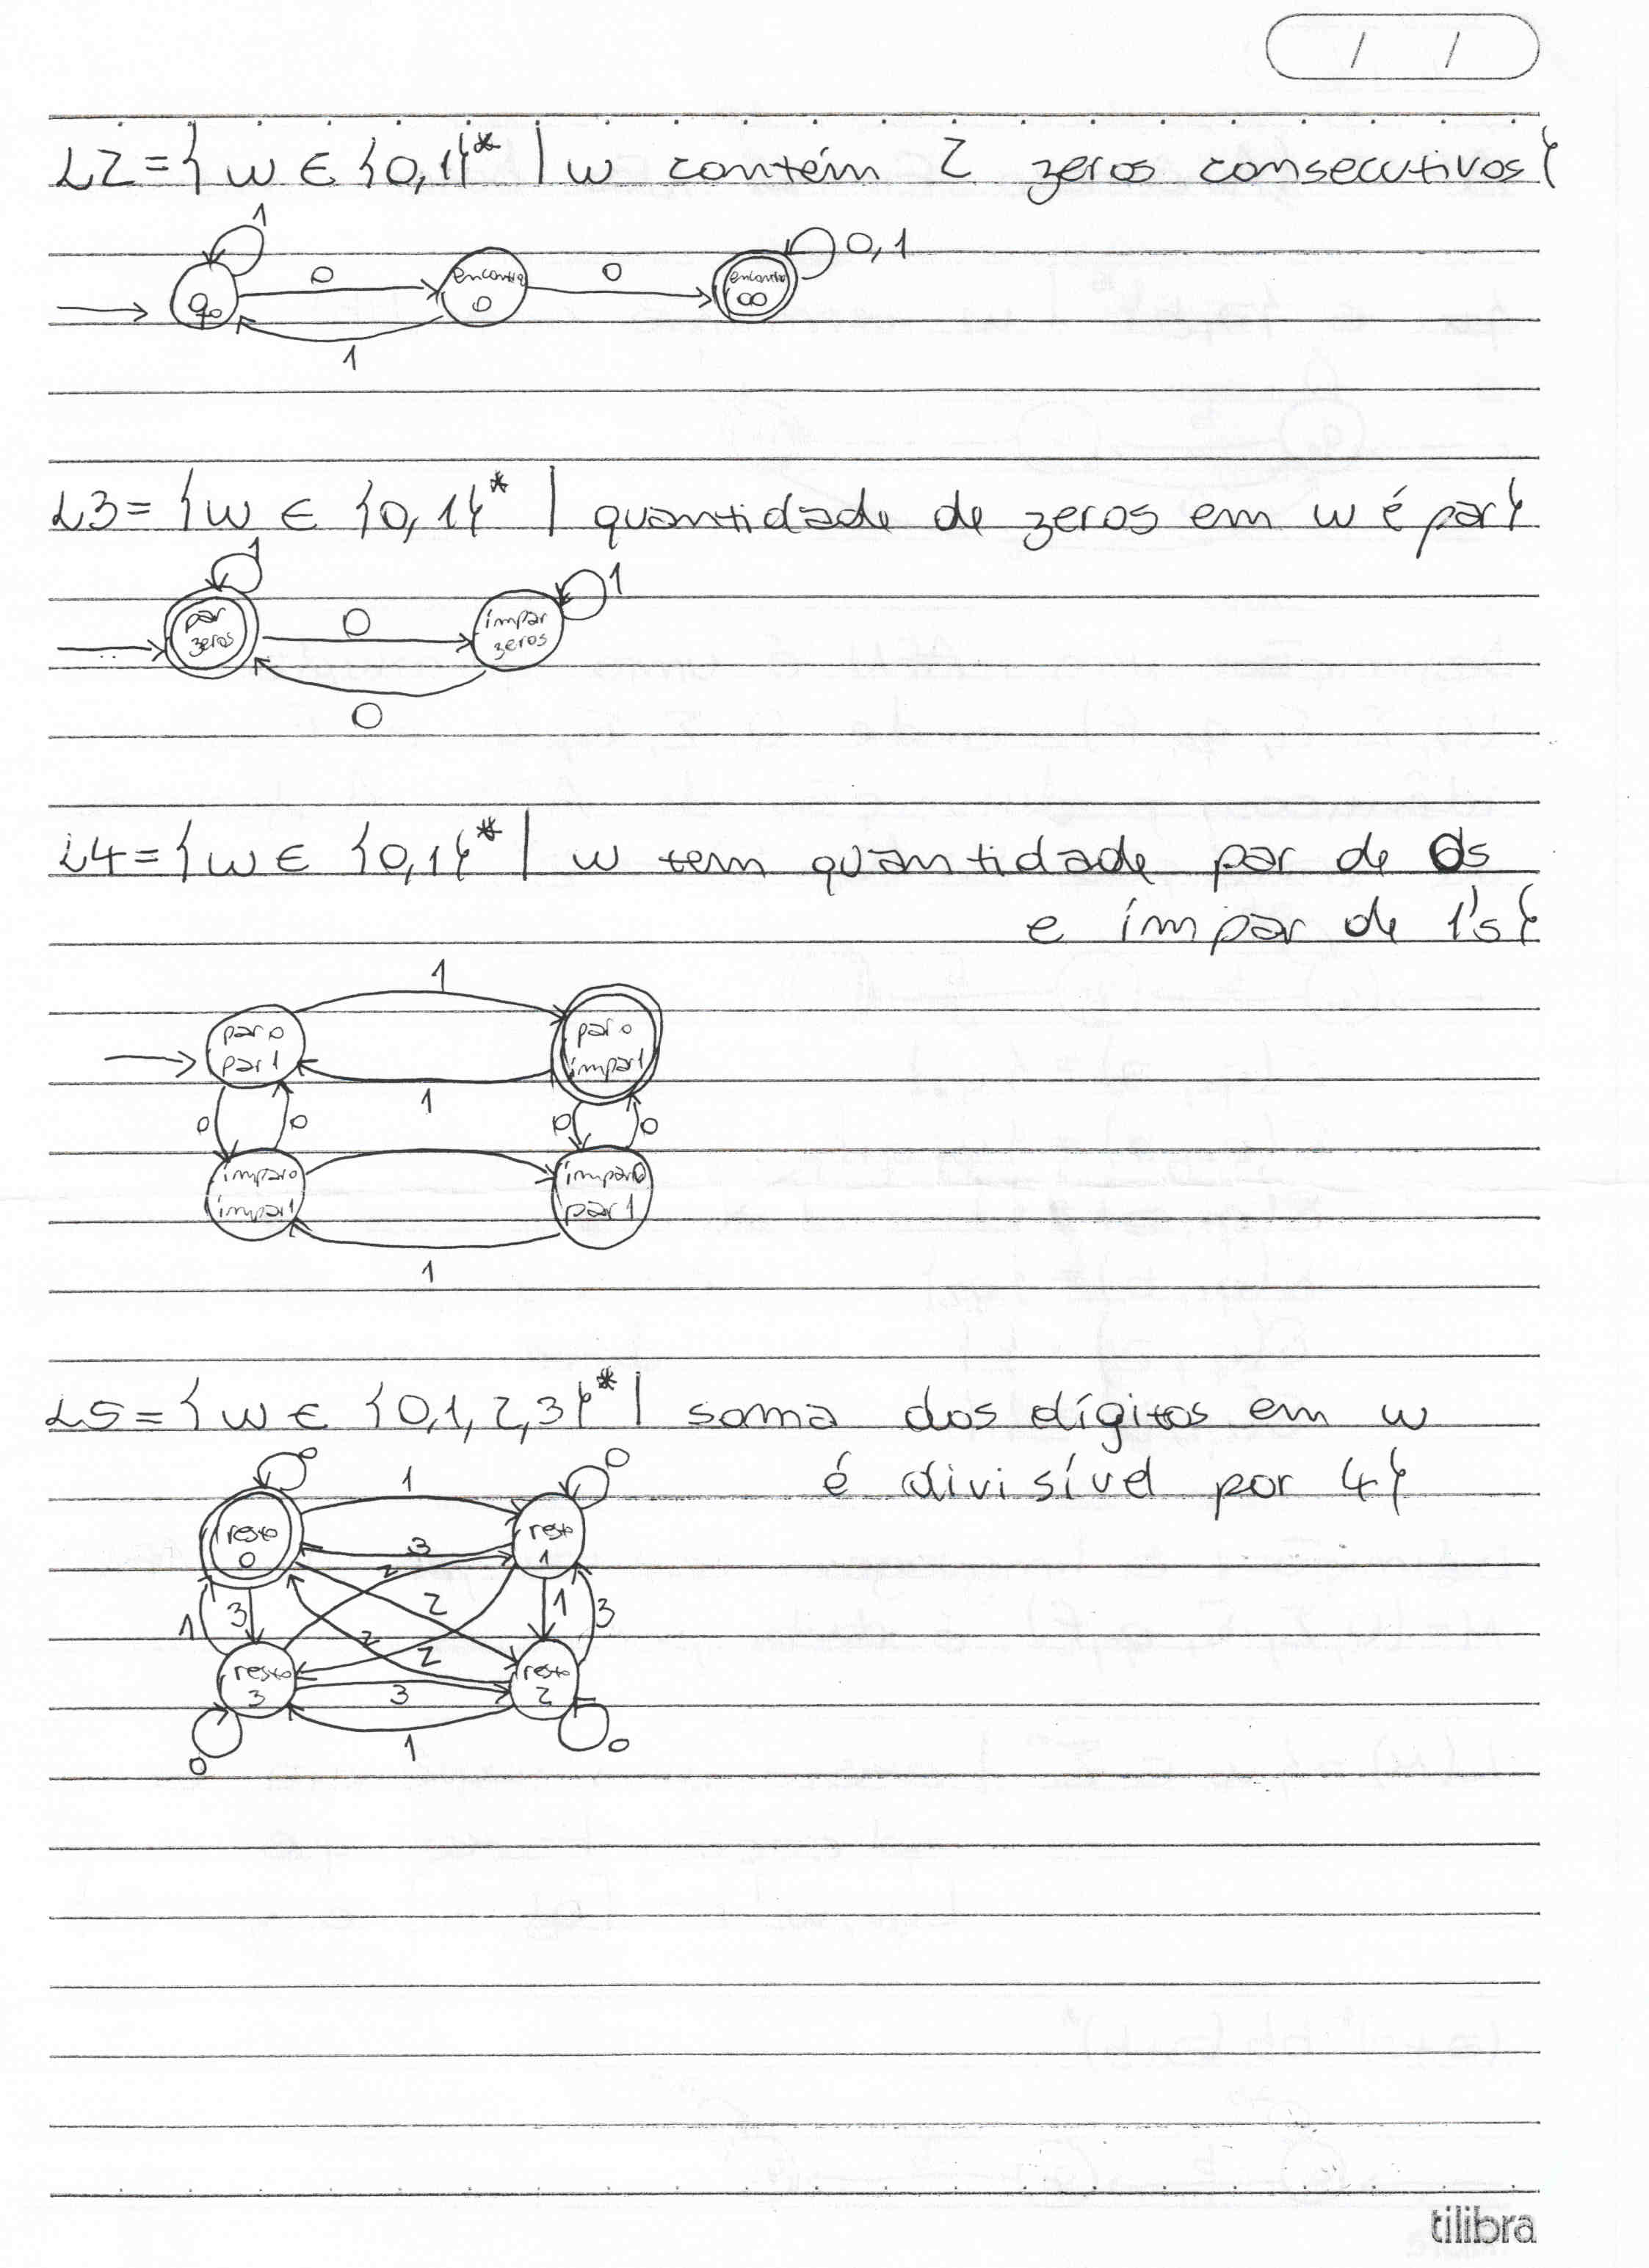 / /
L2 = { w ∈ {0,1}* | w contém 2 zeros consecutivos }
1
0
0
0,1
q0
encontra
0
encontra
00
1
L3 = { w ∈ {0,1}* | quantidade de zeros em w é par }
1
1
par
zeros
0
ímpar
zeros
0
L4 = { w ∈ {0,1}* | w tem quantidade par de 0s
e ímpar de 1's }
1
par 0
par 1
par 0
ímpar 1
1
0
0
0
0
ímpar 0
ímpar 1
ímpar 0
par 1
1
L5 = { w ∈ {0,1,2,3}* | soma dos dígitos em w
é divisível por 4 }
0
1
0
resto
0
resto
1
3
2
1
3
2
1
3
2
2
resto
3
resto
2
3
0
1
0
tilibra